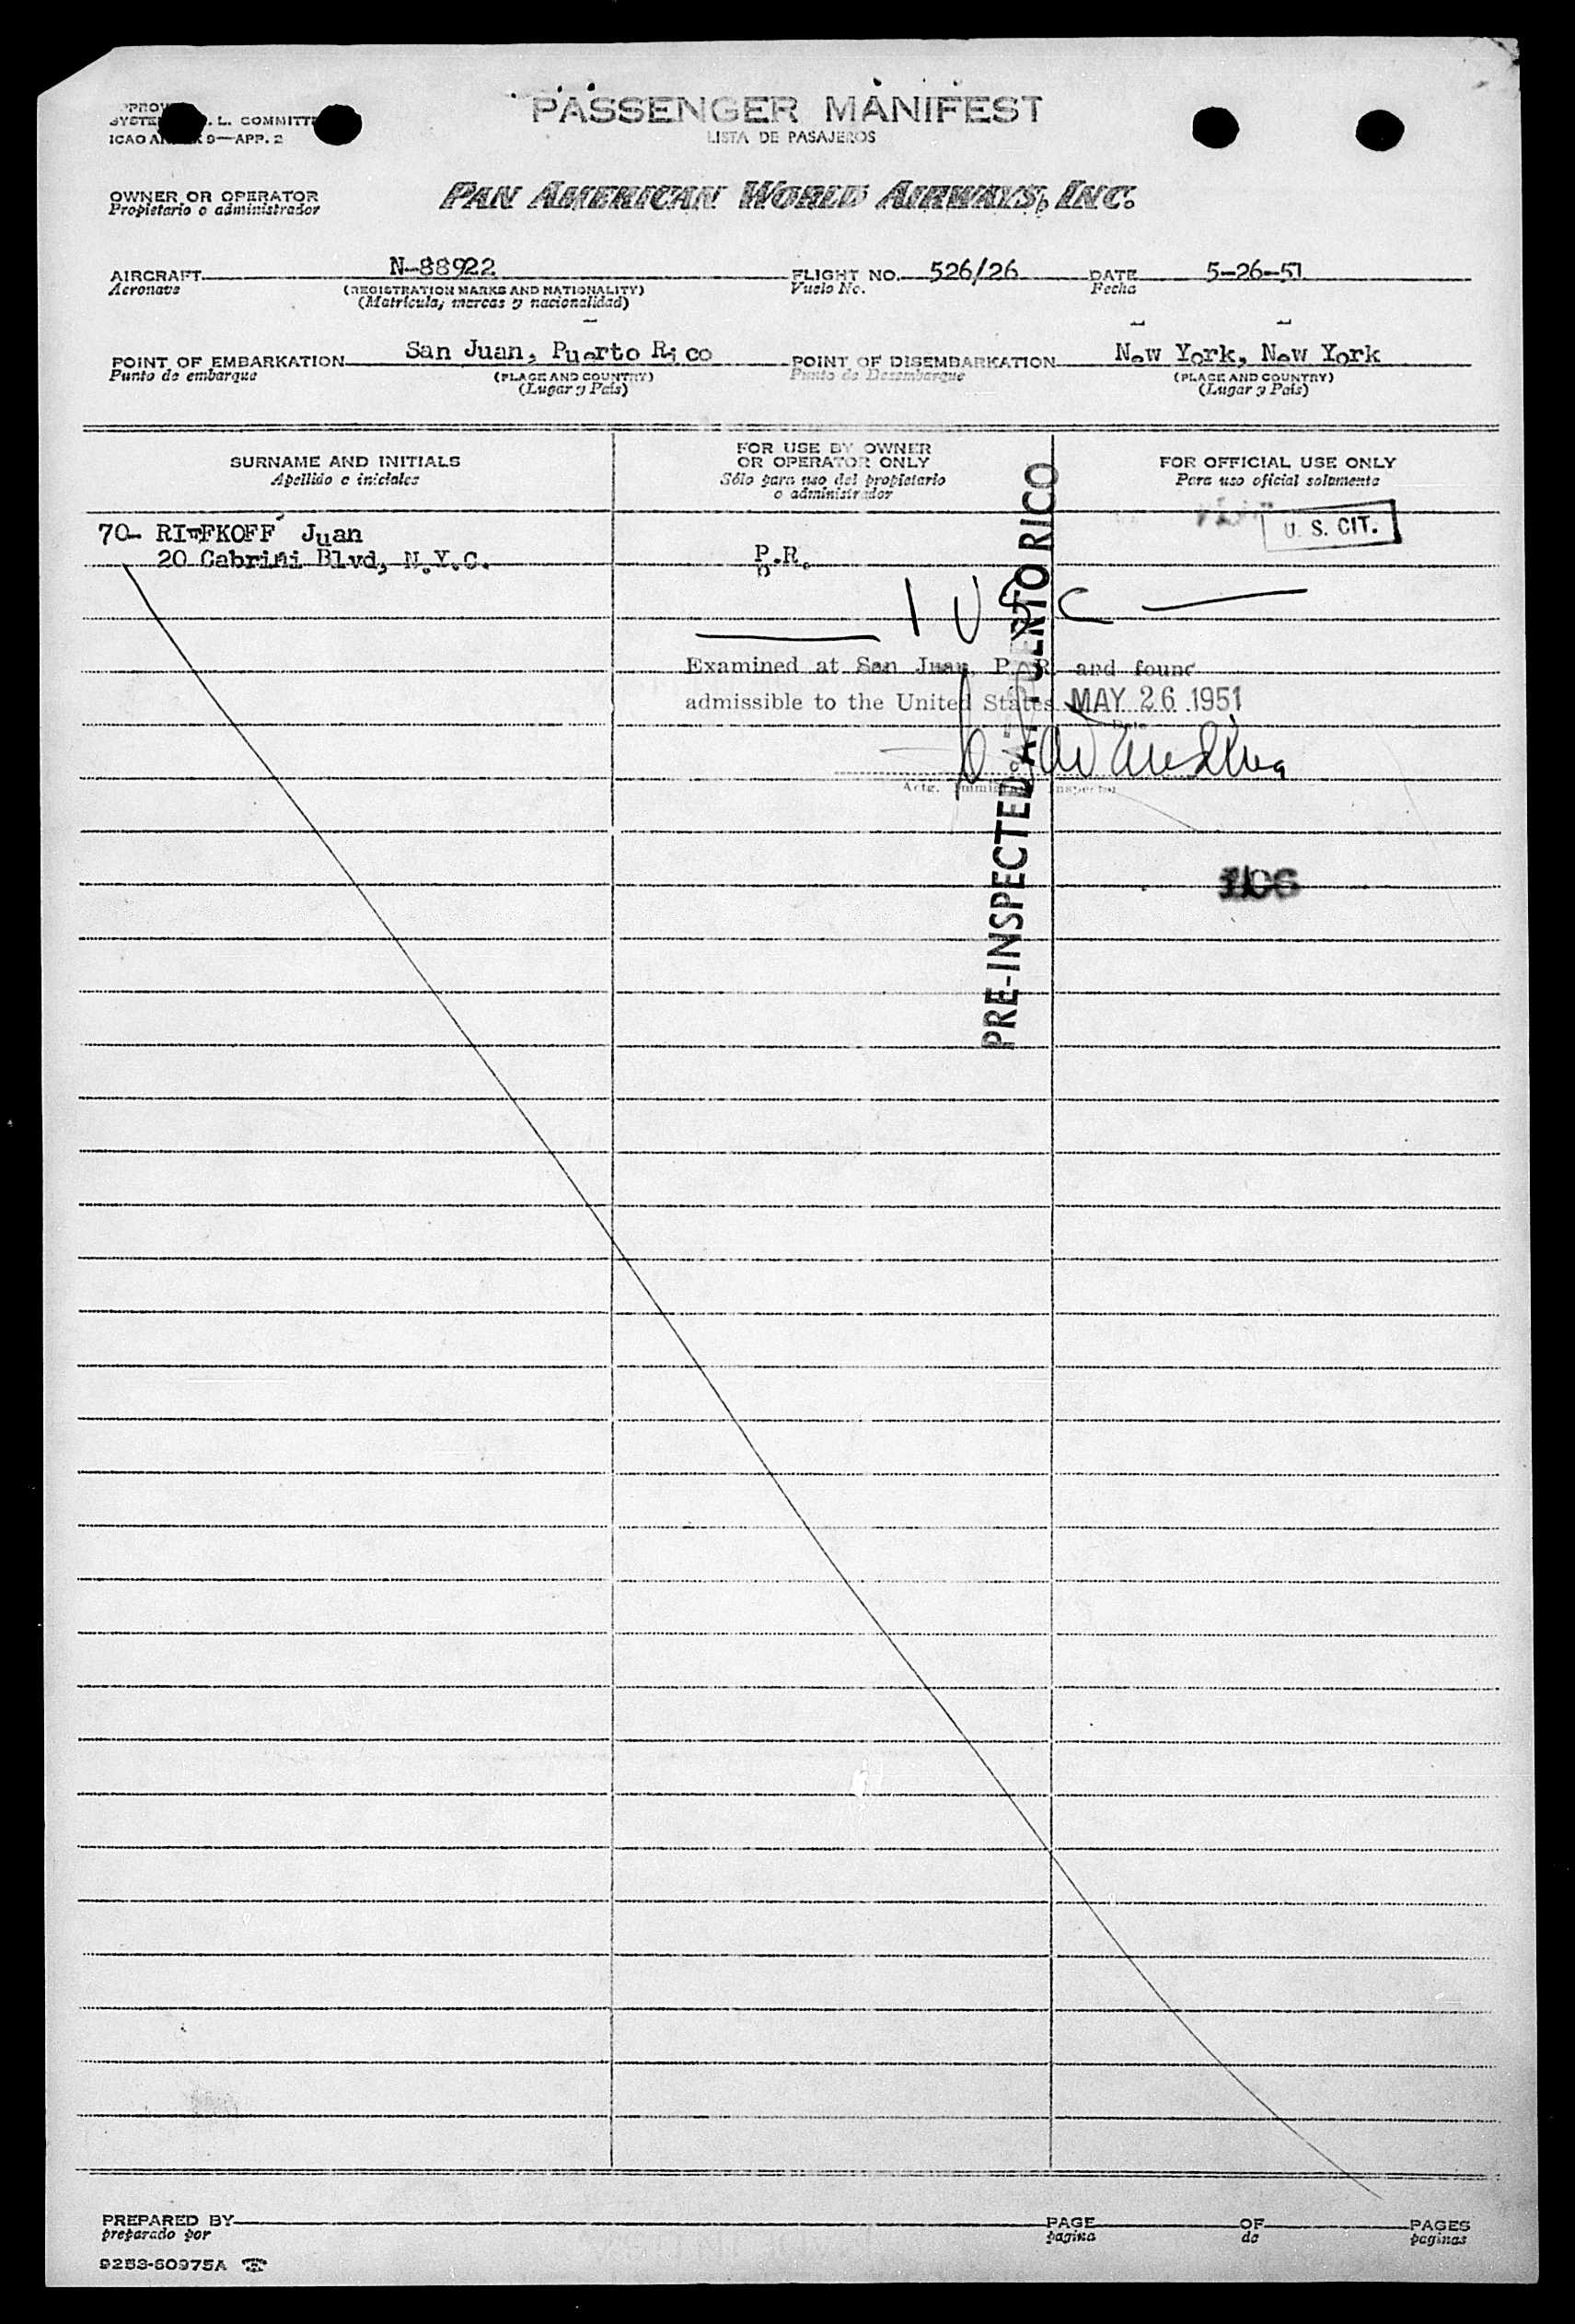 PASSENGER MANIFEST
LISTA DE PASAJEROS
L. COMMITT
ICAO 9—APP. 2
OWNER OR OPERATOR
Propietario o administrador
PAN AMERICAN WORLD AIRWAYS, INC.
AIRCRAFT N-88922 FLIGHT NO. 526/26 DATE 5-26-51
Aeronave (REGISTRATION MARKS AND NATIONALITY) Vuelo No. Fecha
(Matricula, marcas y nacionalidad)
POINT OF EMBARKATION San Juan, Puerto Rico POINT OF DISEMBARKATION New York, New York
Punto de embarque (PLACE AND COUNTRY) Punto de Desembarque (PLACE AND COUNTRY)
(Lugar y País) (Lugar y País)
SURNAME AND INITIALS
Apellido e iniciales
FOR USE BY OWNER
OR OPERATOR ONLY
Sólo para uso del propietario
o administrador
FOR OFFICIAL USE ONLY
Para uso oficial solamente
U. S. CIT.
70- Juan
20 Cabrini Blvd, N.Y.C. P.R.
1 U S C
Examined at San Juan, P. R. and found
admissible to the United States MAY 26 1951
Date
Actg. Immigrant Inspector
PRE-INSPECTED AT PUERTO RICO
PREPARED BY PAGE OF PAGES
preparado por pagina de paginas
9253-60975A